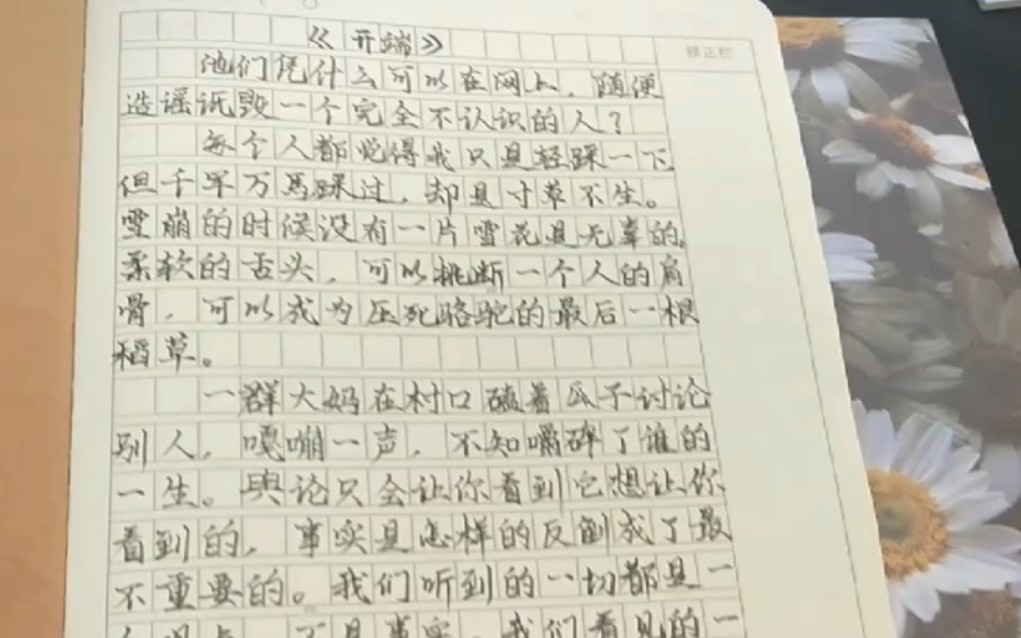 修正栏
《开端》
他们凭什么可以在网上，随便
造谣诋毁一个完全不认识的人？
每个人都觉得我只是轻踩一下
但千军万马踩过，却是寸草不生。
雪崩的时候没有一片雪花是无辜的。
柔软的舌头，可以挑断一个人的肩
骨，可以成为压死骆驼的最后一根
稻草。
一群大妈在村口磕着瓜子讨论
别人，嘎嘣一声，不知嚼碎了谁的
一生。舆论只会让你看到它想让你
看到的，事实是怎样的反倒成了最
不重要的。我们听到的一切都是一
个观点，不是事实，我们看见的一